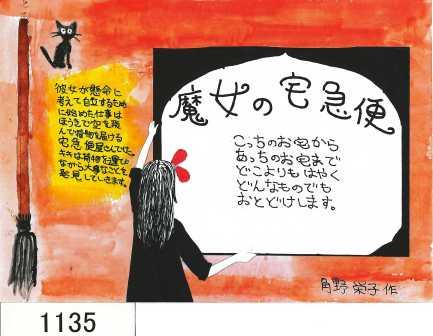 魔女の宅急便
こっちのお宅から
あっちのお宅まで
どこよりもはやく
どんなものでも
おとどけします。
彼女が懸命に
考えて自立するため
に始めた仕事は
ほうきで空を飛
んで荷物を届ける
宅急便屋さんでした。
キキは荷物を運び
ながら大事なことを
発見していきます。
角野 栄子 作
1135